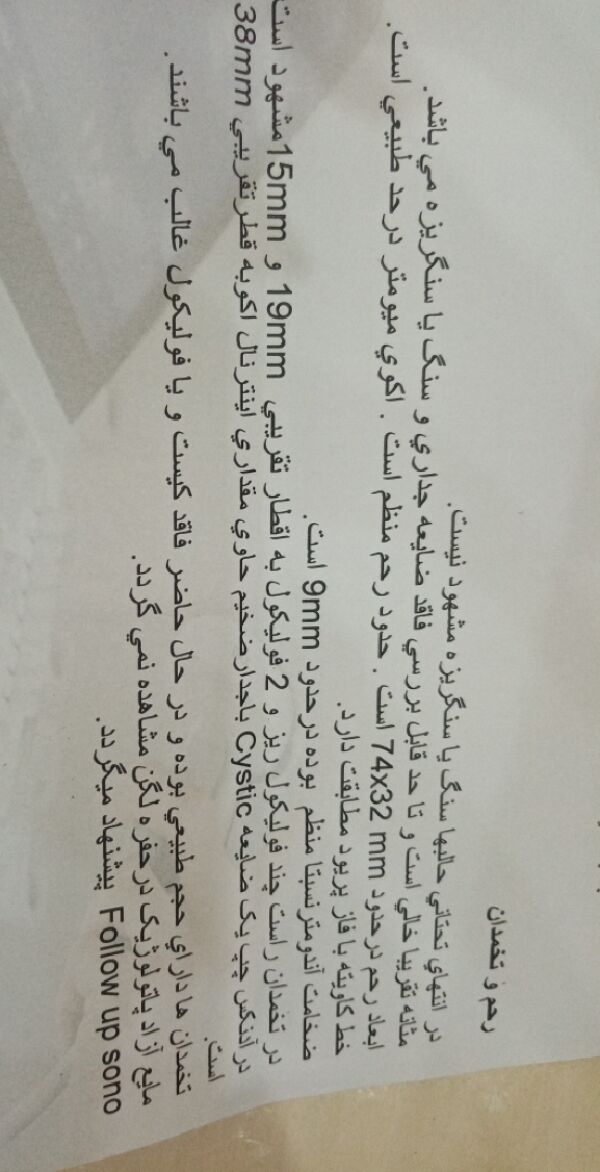 رحم و تخمدان
در انتهاي تحتاني حالبها سنگ يا سنگريزه مشهود نيست.
مثانه تقريبا خالي است و تا حد قابل بررسي فاقد ضايعه جداري و سنگ يا سنگريزه مي باشد.
ابعاد رحم درحدود 74x32 mm است . حدود رحم منظم است . اكوي ميومتر درحد طبيعي است.
خط كاويته با فاز پريود مطابقت دارد.
ضخامت آندومتر نسبتا منظم بوده درحدود 9mm است.
در تخمدان راست چند فوليكول ريز و 2 فوليكول به اقطار تقريبي 19mm و 15mm مشهود است
در آدنكس چپ يک ضايعه Cystic باجدار ضخيم حاوي مقداري اينترنال اكو به قطر تقريبي 38mm
است.
تخمدان ها داراي حجم طبيعي بوده و در حال حاضر فاقد كيست و يا فوليكول غالب مي باشند.
مايع آزاد پاتولوژيک در حفره لگن مشاهده نمي گردد.
Follow up sono پيشنهاد ميگردد.